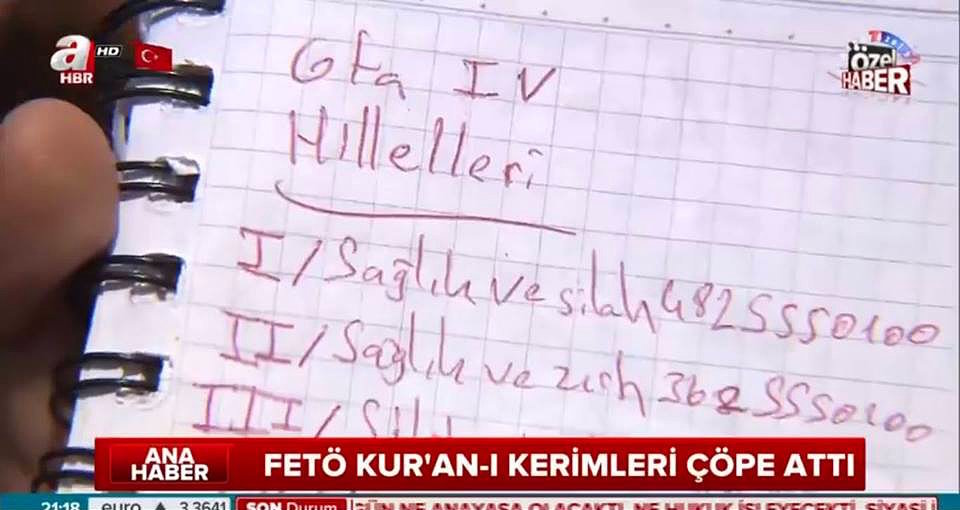 a HD
HBR
Özel
HABER
Gta IV
Hıllelleri
I/Sağlık ve silah 4825550100
II/Sağlık ve zırh 3625550100
III/Sil
ANA
HABER
FETÖ KUR'AN-I KERİMLERİ ÇÖPE ATTI
21:18 euro ▲ 3.3641 SON Durum GÜN NE ANAYASA OLACAKTI, NE HUKUK İŞLEYECEKTİ, SİYASİ